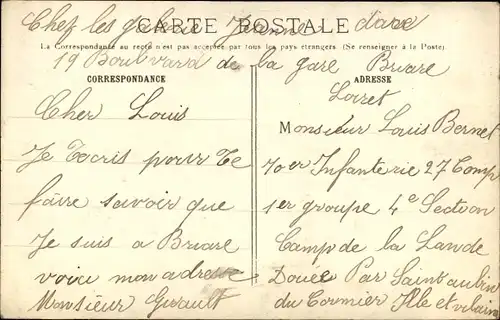 Chez les Jeanne dare
CARTE POSTALE
La Correspondance au recto n'est pas acceptée par tous les pays étrangers. (Se renseigner à la Poste).
19 Boulvard de la gare Briare
Loiret
CORRESPONDANCE
Cher Louis
Je Tecris pour Te
faire savoir que
Je suis a Briare
voici mon adresse
Monsieur
ADRESSE
Monsieur Louis Bernet
70er Infanterie 27 Comp
1er groupe 4e Section
Camp de la Lande
Douee Par Saint aubin
du Cormier Ille et vilaine